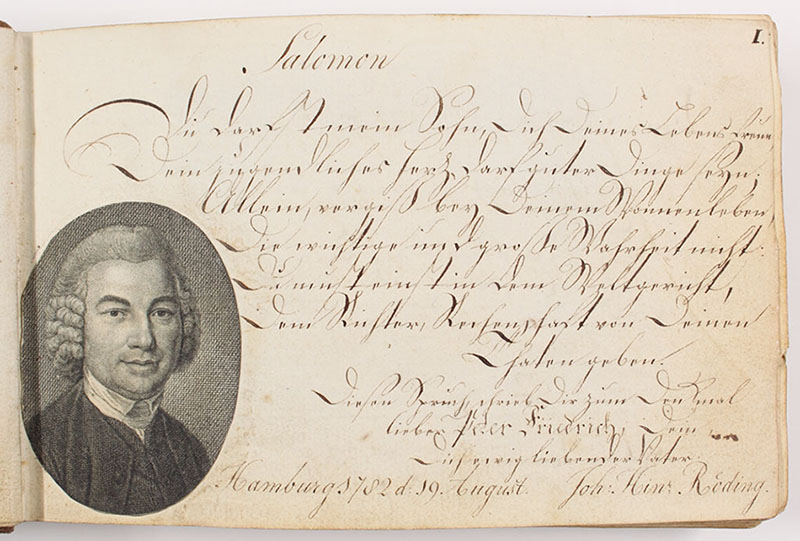 I.
Salomon
Du darfst mein Sohn, dich deines Lebens freun
Dein jugendliches Herz darf guter Dinge seyn;
Allein, vergiß bey deinem Wonneleben,
Die wichtige und große Wahrheit nicht:
Du must einst in dem Weltgericht,
Dem Richter, Rechenschaft von deinen
Thaten geben.
Diesen Spruch, schrieb dir zum Denkmal
lieber Peter Friedrich, Dein
Dich ewig liebender Vater.
Hamburg 1782 d: 19. August. Joh: Hinr Röding.